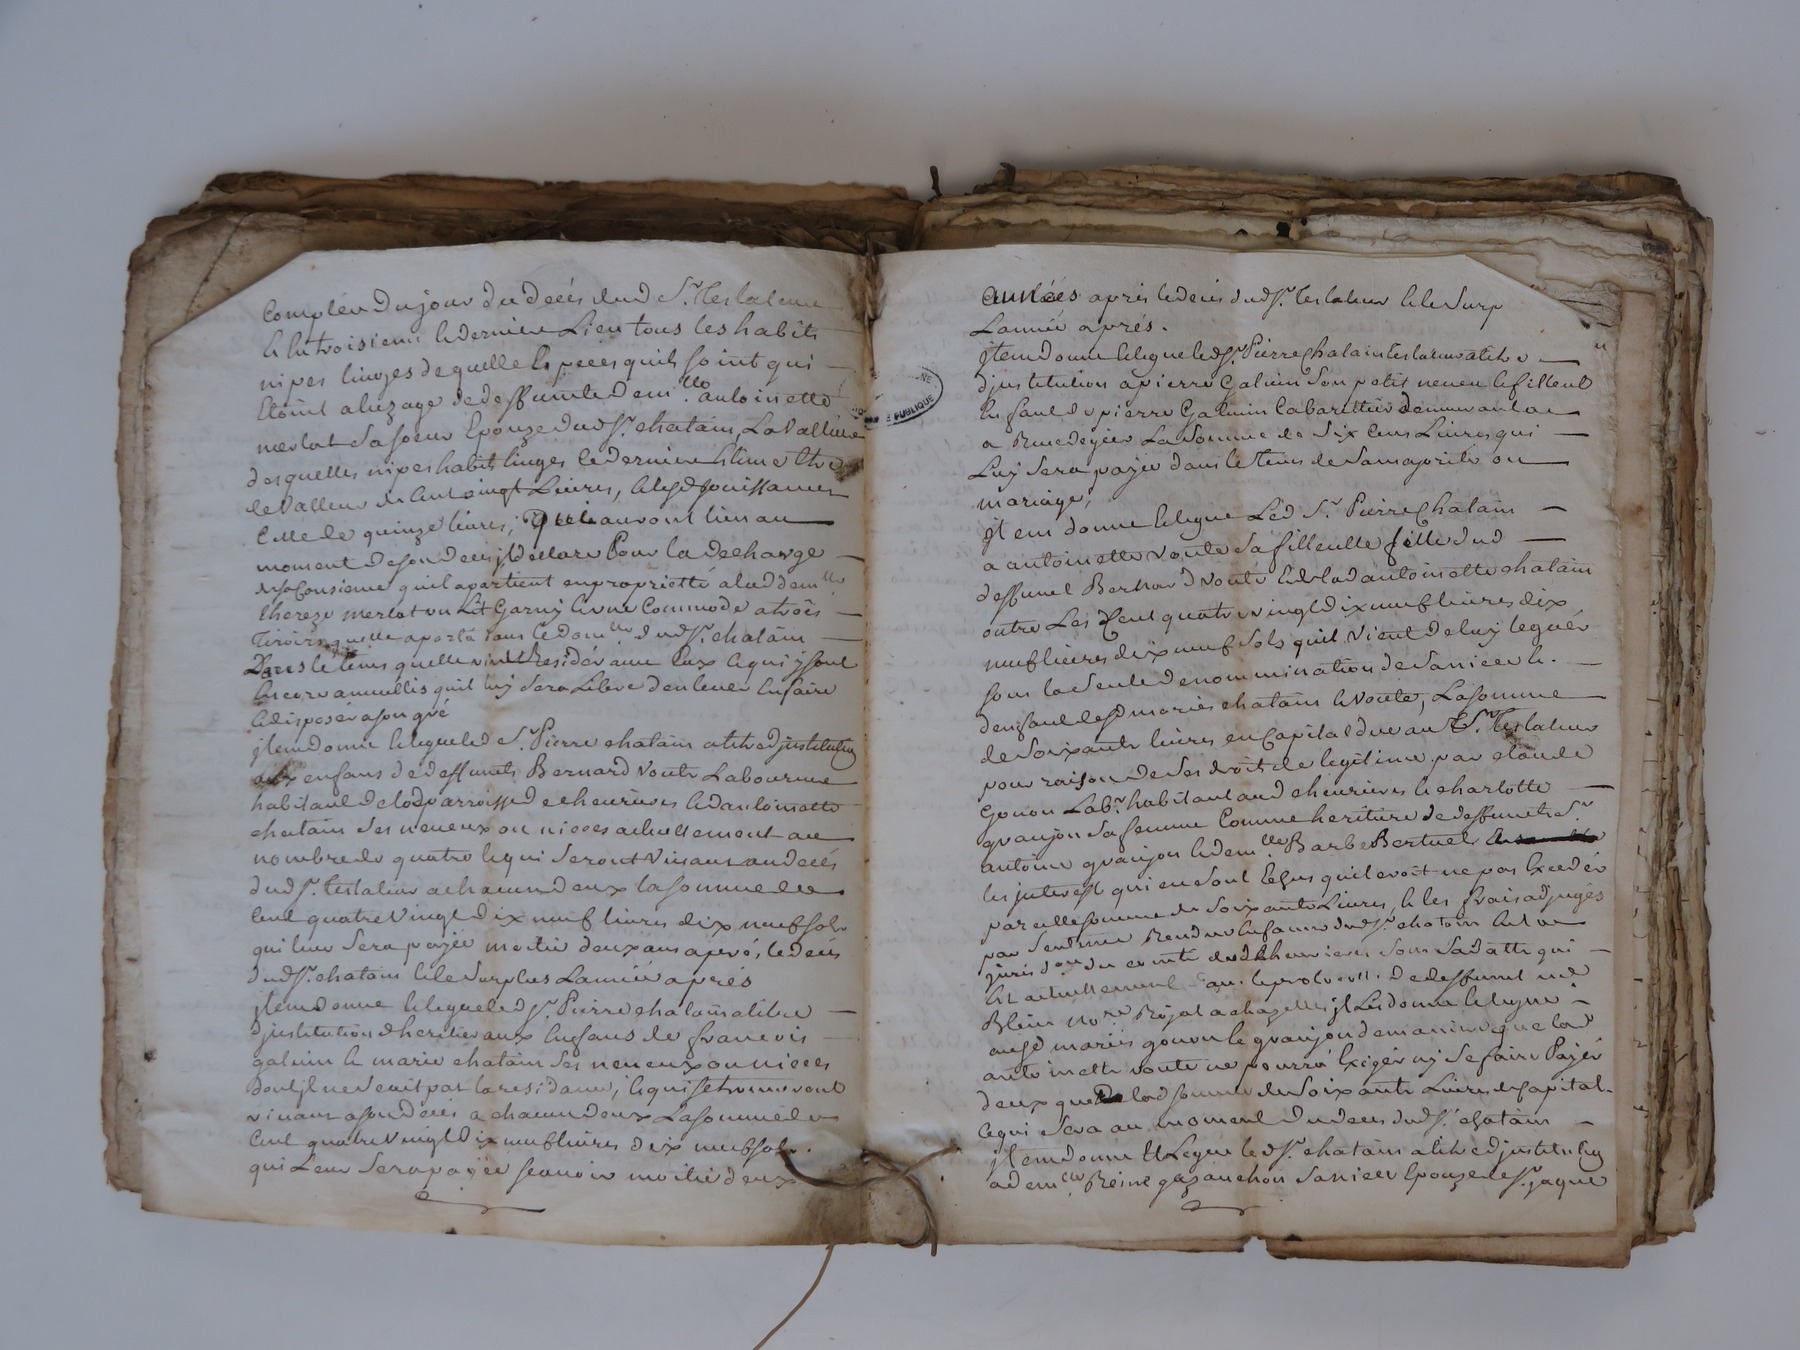 compter du jour du decès dud Sr. testateur
et en troisieme et dernier Lieu tous les habits
nipes linges de quelle especes quils soint qui
étoint a luzage de deffunte demlle. antoinette
merlat sa soeur Epouze dudSr. chatain, La Valleur
desquelles nipes habits linges le dernier estime etre
de Valleur de Cent vingt Livres, et les jouissances
Celle de quinze livres; qui auront lieu au
moment de son deces, il declare Pour la decharge
de sa Consience quil apartient en proprietté a lad demlle
thereze merlat un Lit Garny et une Commode a trois
Tiroirs quelle aporta dans le domlle dudSr. chatain
Dans le tems quelle vint Residér avec Eux et qui y sont
Encore ameublis quil luy sera Libre d'enlever en faire
et disposér a son gré
jtem donne et legue led Sr. Pierre chatain a titre djnstitution
aux enfans de deffunts Bernard voute Laboureur
habitant de lad parroisse de chenereuses et dantoinette
chatain ses neveux ou nieces actuellement au
nombre de quatre et qui seront vivans au decés
dudSr. testateur a chacun deux la somme de
Cent quatre vingt dix neuf livres dix neuf sols
qui leur sera payée moitié deux ans aprés, le decés
dudSr. chatain et le surplus Lannée aprés
jtem donne et legue led Sr. Pierre chatain a titre
djnstitution dheritier aux Enfans de francois
galmin et marie chatain ses neveux ou nieces
dont jl ne scait pas la residance, et qui se trouveront
vivans a son decés a chacun deux La somme de
Cent quatre vingt dix neuf livres dix neuf sols.
qui Leur sera payée scavoir moitié deux
années aprés le decés dudSr. testateur et le surp
Lannée aprés.
jtem donne et legue ledSr. Pierre Chatain testateur a titre
djnstitution a pierre Galmin son petit neveu et filleul
Enfant de pierre Galmin Cabarettier demeurant a
La Somme de Six Cens Livres qui
Luy sera payée dans le tems de sa majorité ou
mariage,
jtem donne et legue Led Sr. Pierre Chatain
a antoinette voute sa filleulle fille dud
deffunt Bernard voute et de lad antoinette chatain
outre Les Cent quatre vingt dix neuf livres dix
neuf livres dix neuf sols quil vient de luy leguér
sous la seule denommination de sa niece et
denfant desd mariés chatain et voute, La somme
de soixante livres en Capital due au Sr. testateur
pour raison de ses droits de legitime par claude
Gonon Labr. habitant aud chenereuses et charlotte
granjon sa femme Comme heritiere de deffunts Sr.
antoine granjon et demlle Barbe Bertuel
les jnterest qui en sont Echus quil croit ne pas Excedér
pareille somme de soixante Livres, et les frais adjugés
par Sentence Rendue En faveur dudSr. chatain En la
jurisdon du comté sous sa datte qui
Est actuellement deffunt me
Blein Nore Royal a chazelles, jl Les donne et legue
ausd mariés gonon et granjon de maniere que lad
antoinette voute ne pourra Exigér ny se faire Payér
deux que lad somme de soixante Livres de Capital.
ce qui sera au moment du deces dudSr. chatain
jtem donne Et Legue le dSr. chatain a titre djnstitution
a demlle. Reine gazanchon sa niece Epouze de Sr. jaque